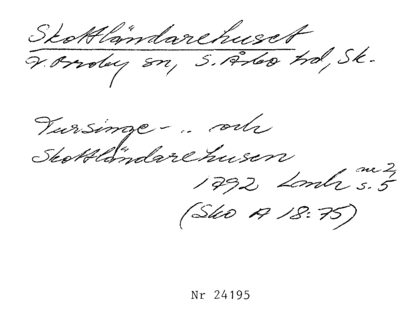 Skottländarehuset
V. Broby sn, S. Åsbo hd, Sk.
Tursinge- .. och
Skottländarehusen
1792 Lmh nr 2, s. 5
(Sko A 18:75)
Nr 24195